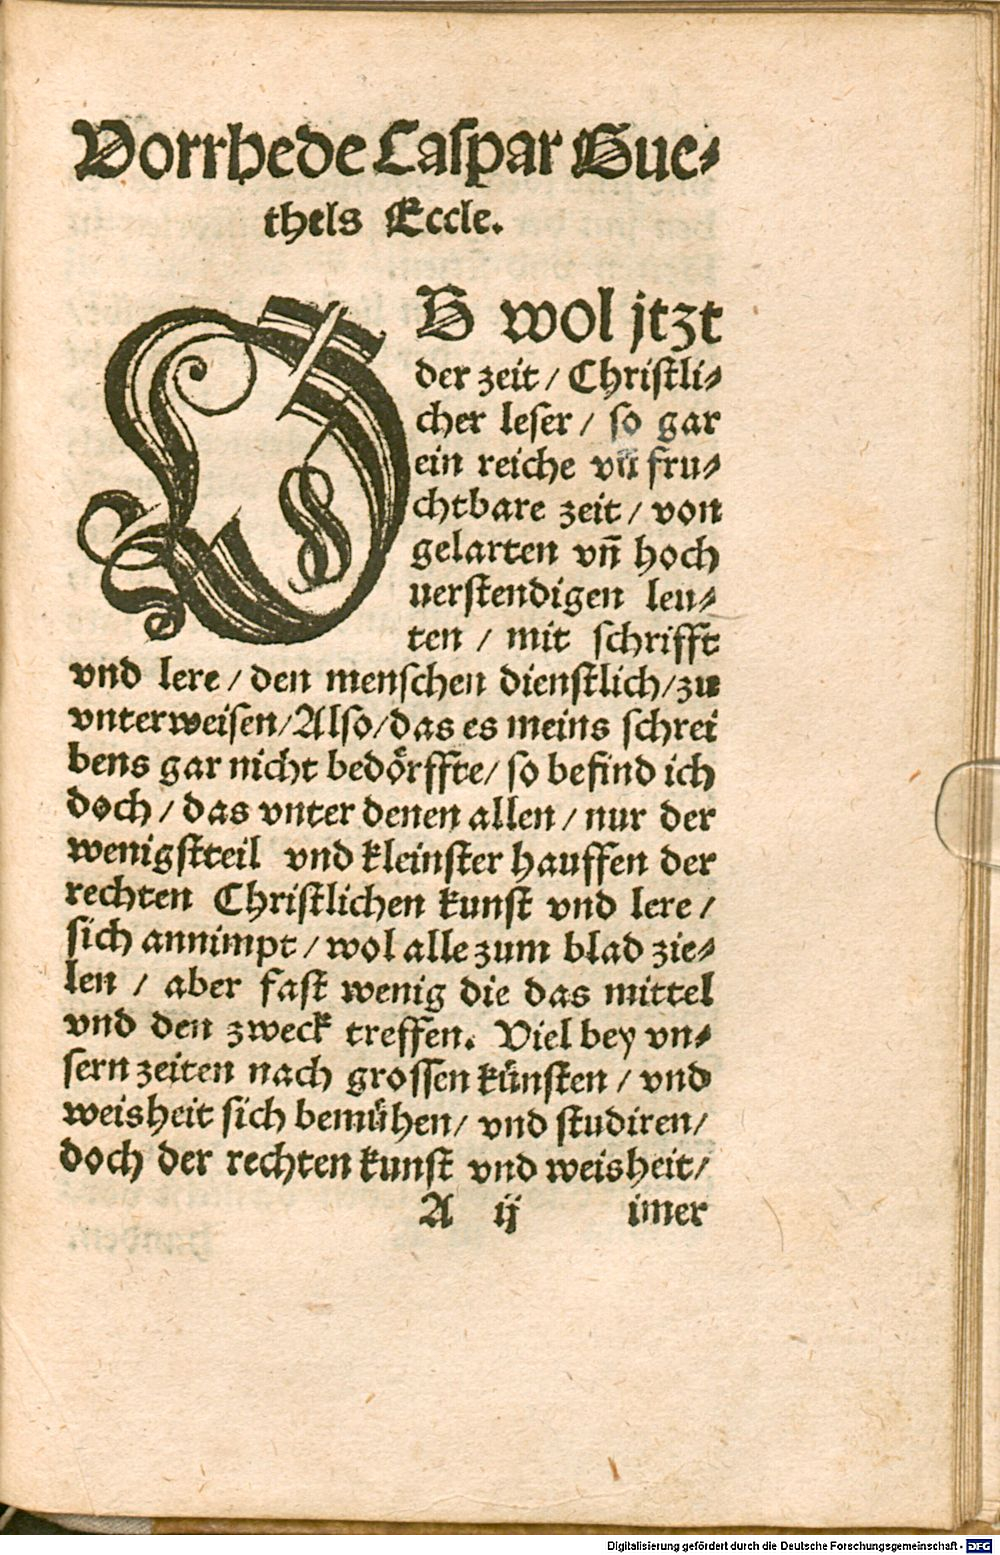 Vorrhede Caſpar Gue⸗
thels Eccle.
OB wol jtzt
der zeit / Chriſtli⸗
cher leſer / ſo gar
ein reiche vñ fru⸗
chtbare zeit / von
gelarten vñ hoch
uerſtendigen leu⸗
ten / mit ſchrifft
vnd lere / den menſchen dienſtlich / zu
vnterweiſen / Alſo / das es meins ſchrei
bens gar nicht bedörffte / ſo befind ich
doch / das vnter denen allen / nur der
wenigſteil vnd kleinſter hauffen der
rechten Chriſtlichen kunſt vnd lere /
ſich annimpt / wol alle zum blad zie⸗
len / aber faſt wenig die das mittel
vnd den zweck treffen. Viel bey vn⸗
ſern zeiten nach groſſen künſten / vnd
weisheit ſich bemühen / vnd ſtudiren /
doch der rechten kunſt vnd weisheit /
A ij imer
Digitalisierung gefördert durch die Deutsche Forschungsgemeinschaft - DFG